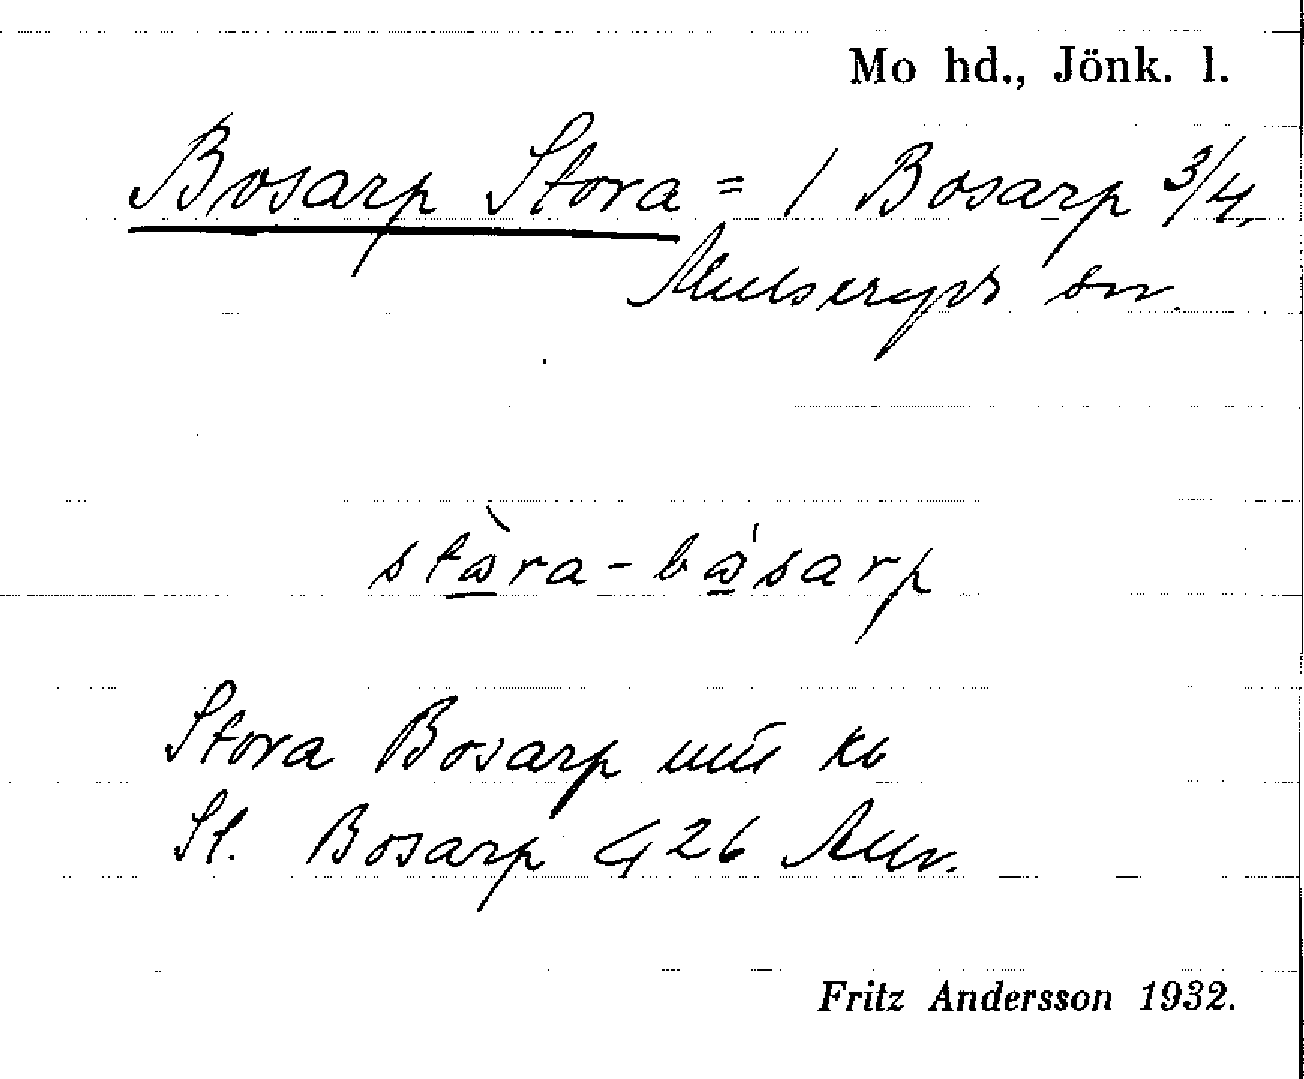 Mo hd., Jönk. l.
Bosarp Stora = 1 Bosarp 3/4,
Mulseryds sn.
stàra-básarp
Stora Bosarp kb
St. Bosarp 426
Fritz Andersson 1932.